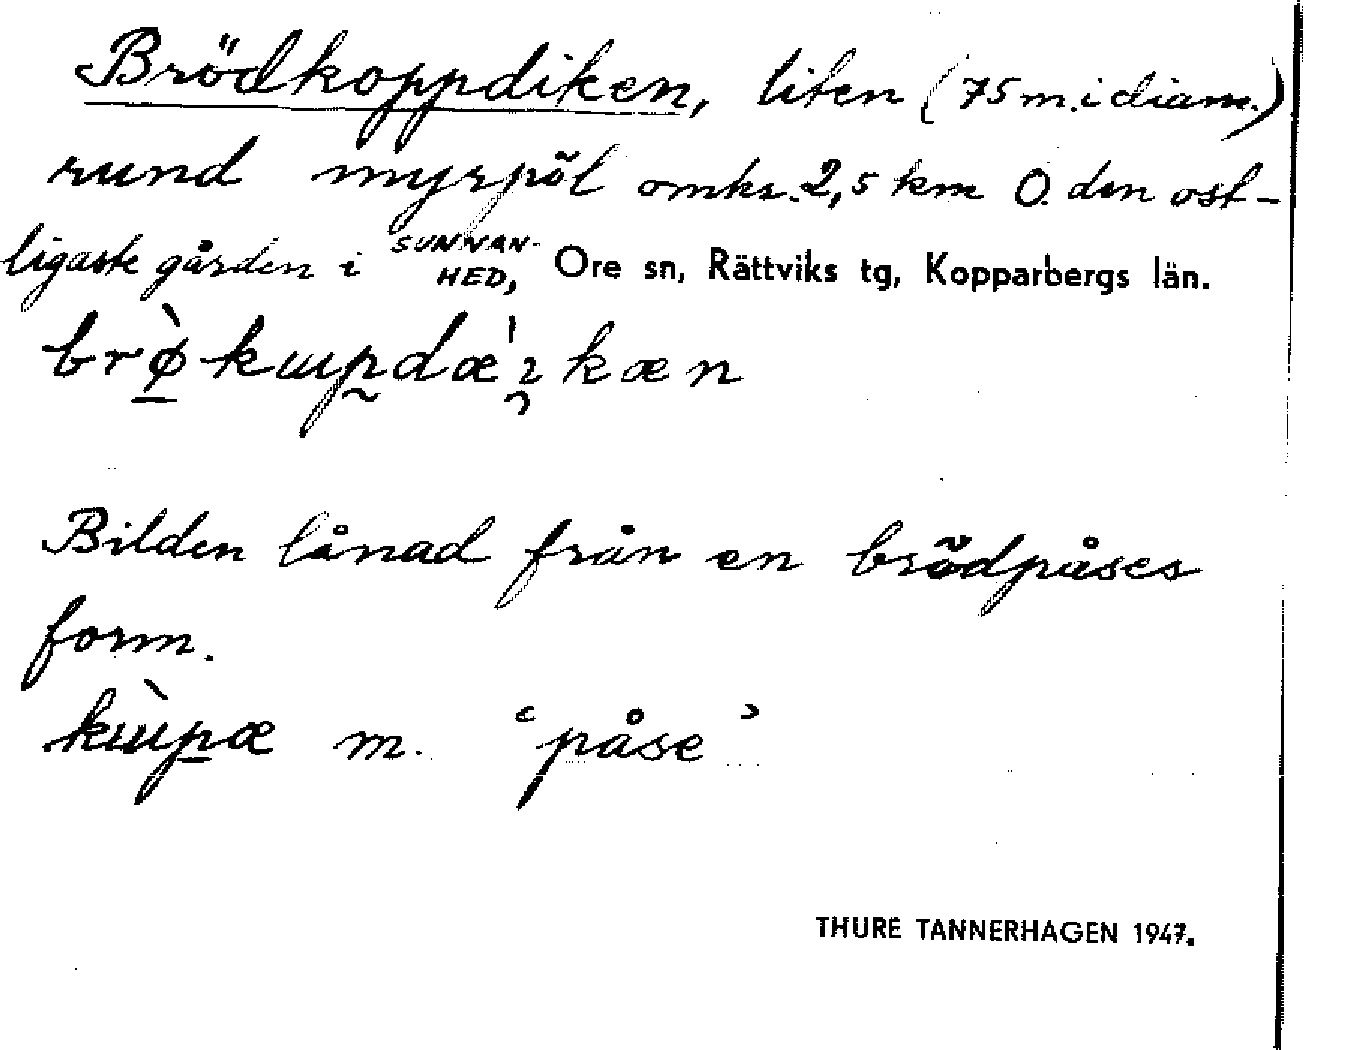 Brödkoppdiken, liten (75 m. i diam.)
rund myrpöl omkr. 2,5 km O. den ost-
ligaste gården i SUNNANHED, Ore sn, Rättviks tg, Kopparbergs län.
Bilden lånad från en brödpåses
form.
m. ‘påse’
THURE TANNERHAGEN 1947.